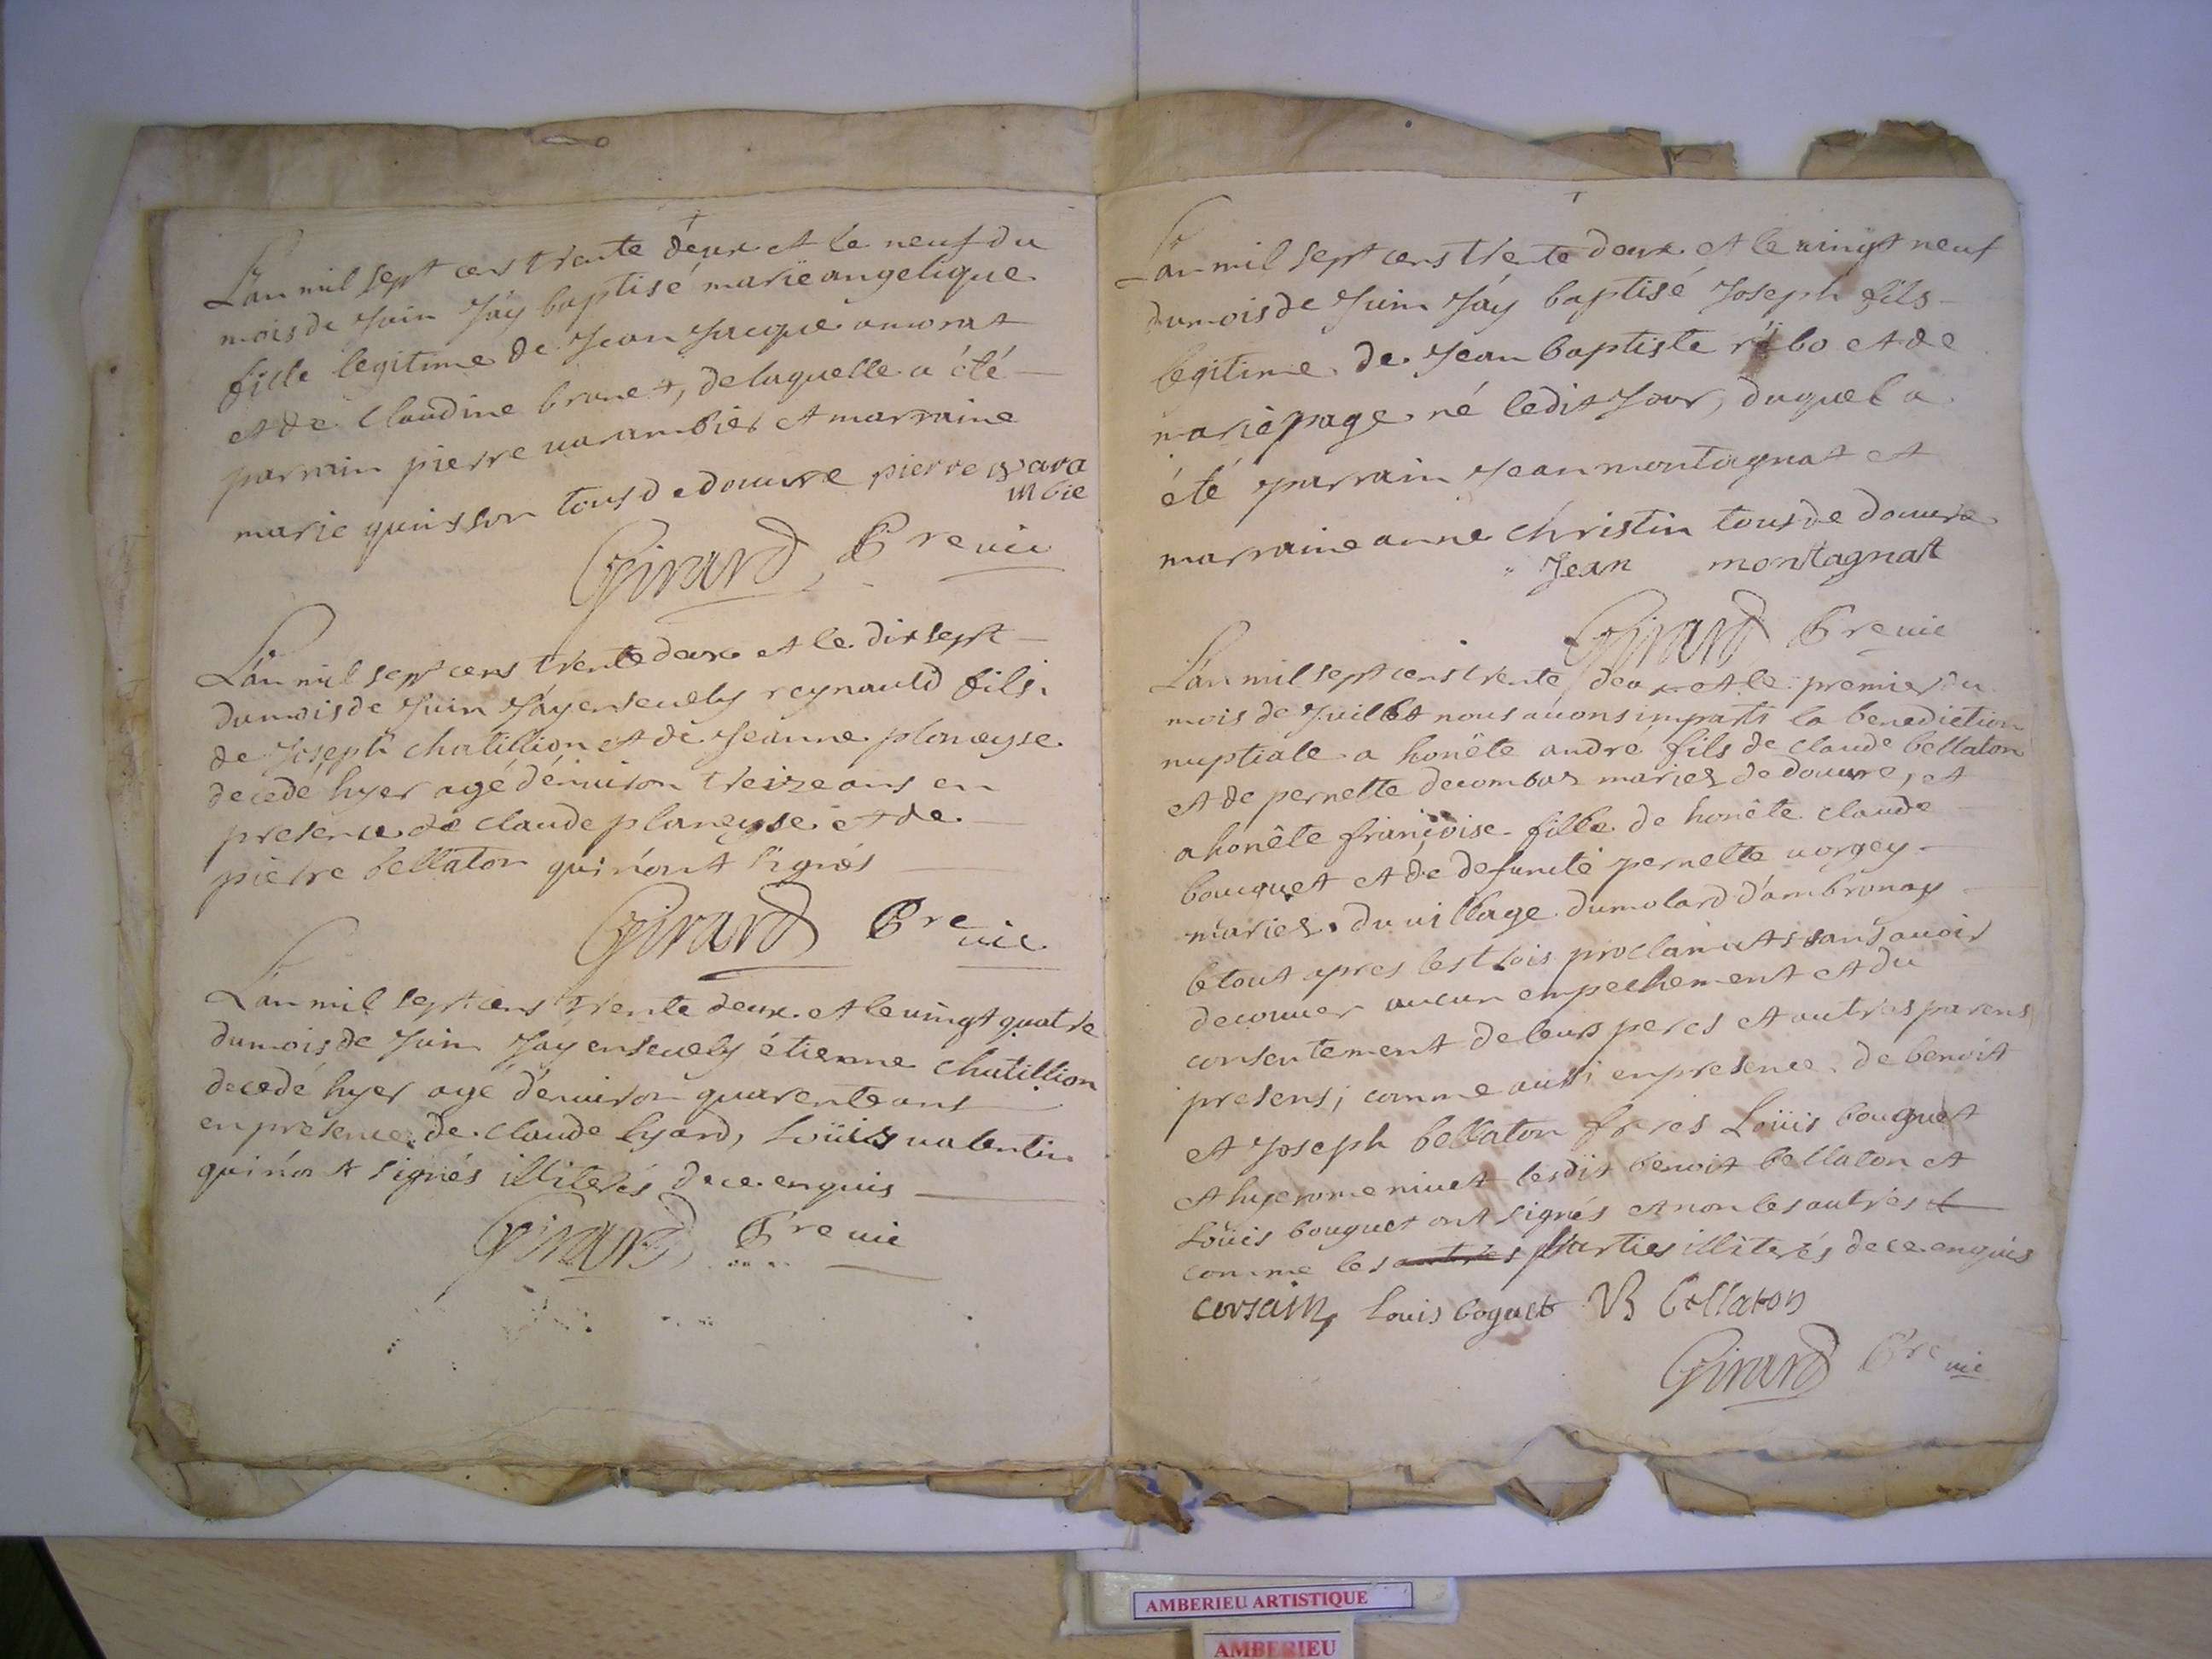 L'an mil sept cens trente déux et le neuf du
mois de Juin J'ay baptisé marie angelique
fille legitime de Jean Jacque amorat
et de Claudine brunet, de laquelle a été
parrain pierre varambier et marraine
marie quinson tous de douvre pierre vara
mbie
Girard Pre vic
L'an mil sept cens trente deux et le dix sept
du mois de Juin J'ay ensevely reynauld fils
de Joseph chatillion et de Jeanne planeyse
decedé hyer agé d'environ treize ans en
presence de claude planeyse et de
pierre bellaton qui n'ont signés
Girard Pre vic
L'an mil sept cens trente deux et le vingt quatre
du mois de Juin J'ay ensevely étienne chatillion
decedé hyer agé d'environ quarente ans
en présence de claude lyard, Loüis valentin
qui n'ont signés illiterés de ce enquis
Girard Pre vic
L'an mil sept cens trente deux et le vingt neuf
du mois de Juin J'ay baptisé Joseph fils
legitime de Jean baptiste ribo et de
marie page né ledit Jour, duquel a
été parrain Jean montagnat et
marraine anne christin tous de douvre
Jean montagnat
Girard Pre vic
L'an mil sept cens trente deux et le premier du
mois de Juillet nous avons imparti la benediction
nuptiale a honête andré fils de claude bellaton
et de pernette decombas mariez de douvre, et
a honête françoise fille de honête claude
bouquet et de defuncte pernette vorgey
mariez du village du molard d'ambronay
le tout apres les trois proclamats sans avoir
decouver aucun empechement et du
consentement de leurs peres et autres parens
presens, comme aussi en presence de benoit
et Joseph bellaton freres Loüis bouquet
et hyerome nivet lesdit benoit bellaton et
Loüis bouquet ont signés et non les autres et
comme les autres parties illiterés de ce enquis
corsain, Louis boguet B bellaton
Girard Pre vic
AMBERIEU ARTISTIQUE
AMBERIEU